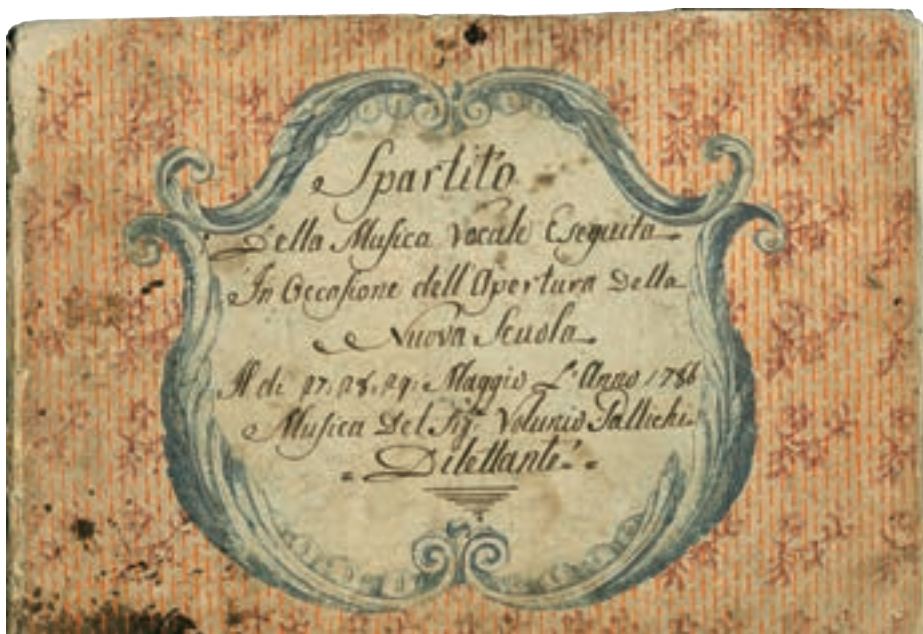 Spartito
Della Musica Vocale Eseguita
In Occasione dell'Apertura Della
Nuova Scuola
Il di 27. 28. 29. Maggio L'Anno 1786
Musica Del Sigr. Volunio
Dilettante